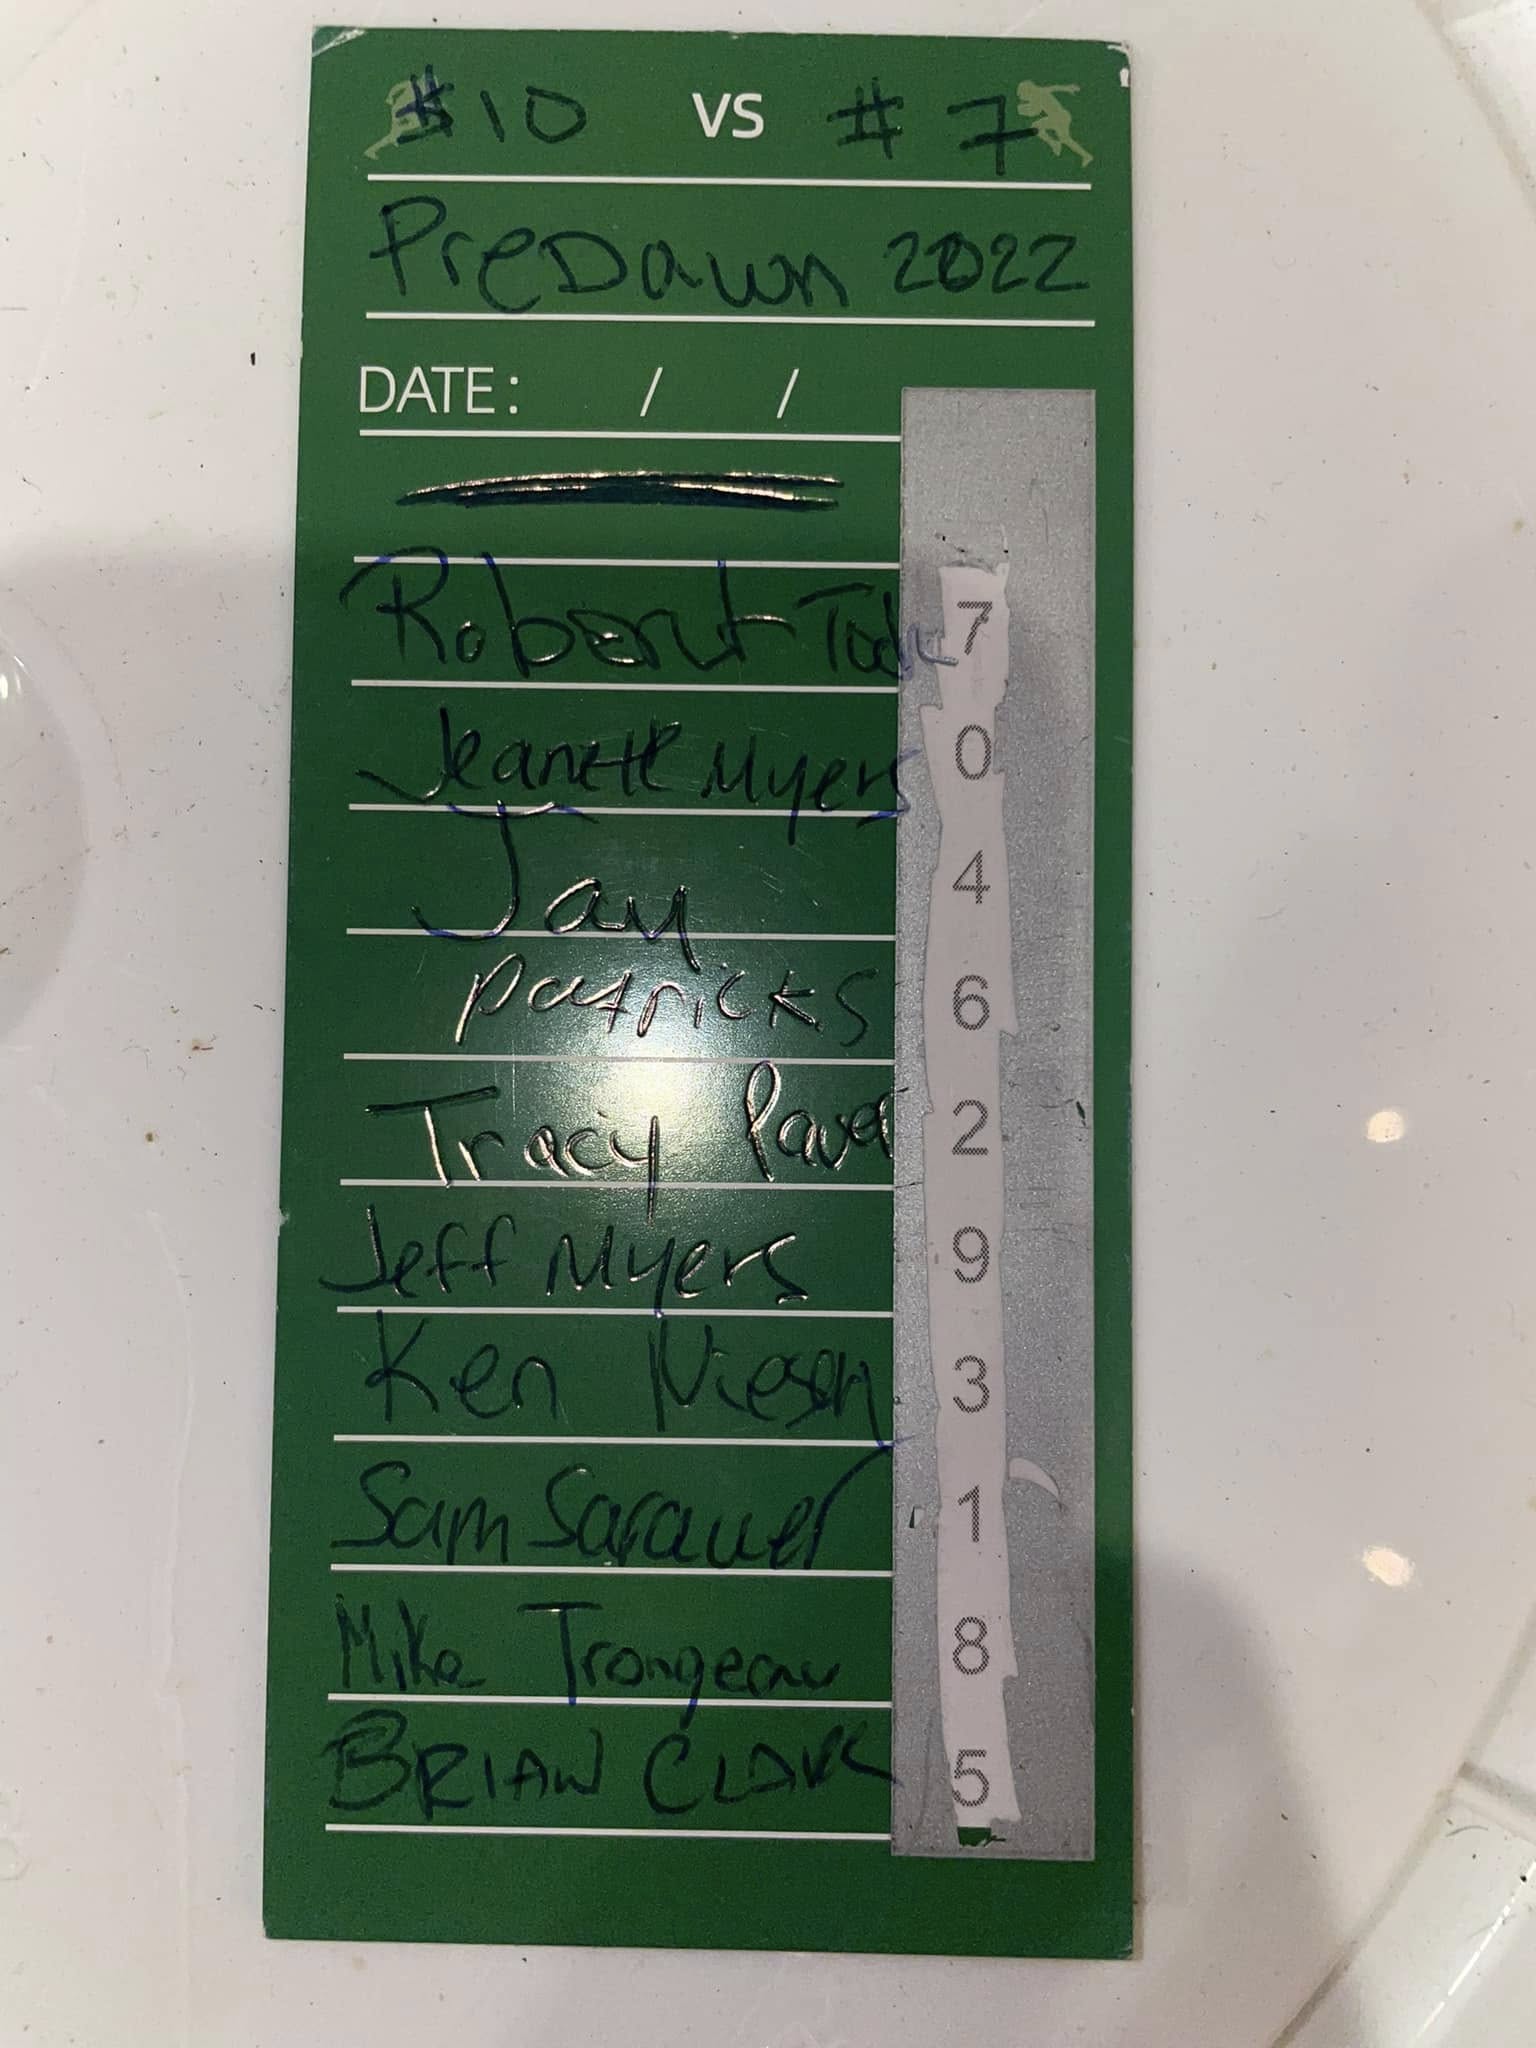 #10 VS #7
PreDawn 2022
DATE: / /
Robert 7
Jeanette Myers 0
Jay 4
patricks 6
Tracy 2
Jeff Myers 9
Ken Niesen 3
Sam Sarauer 1
Mike Trongeau 8
BRIAN CLARK 5